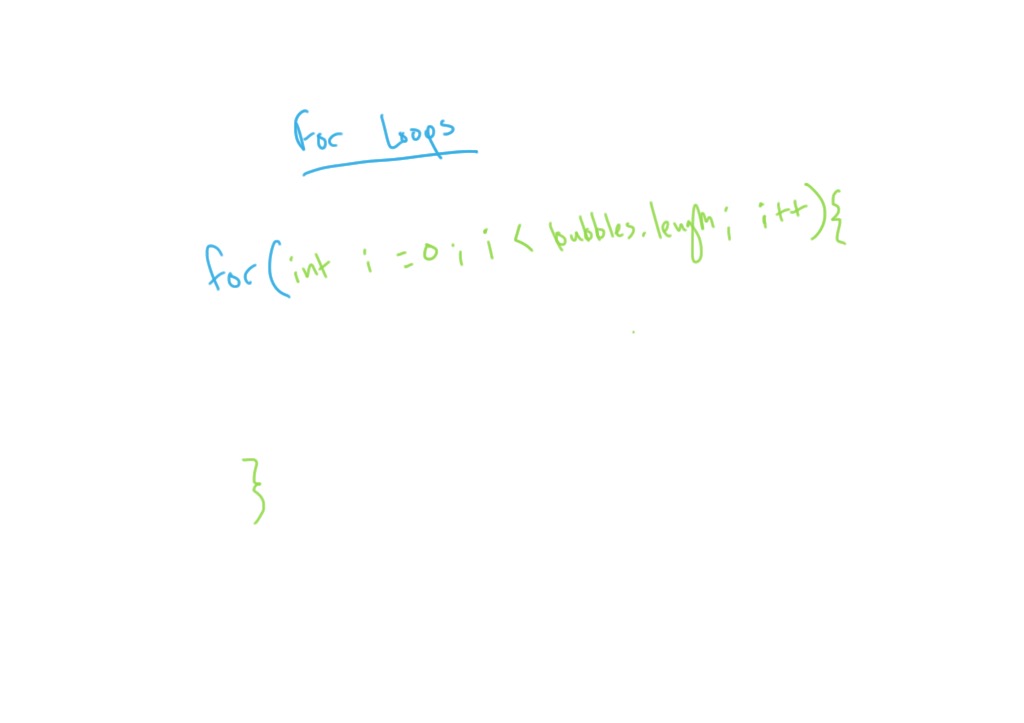 For Loops
for(int i = 0; i < bubbles.length; i++){
}